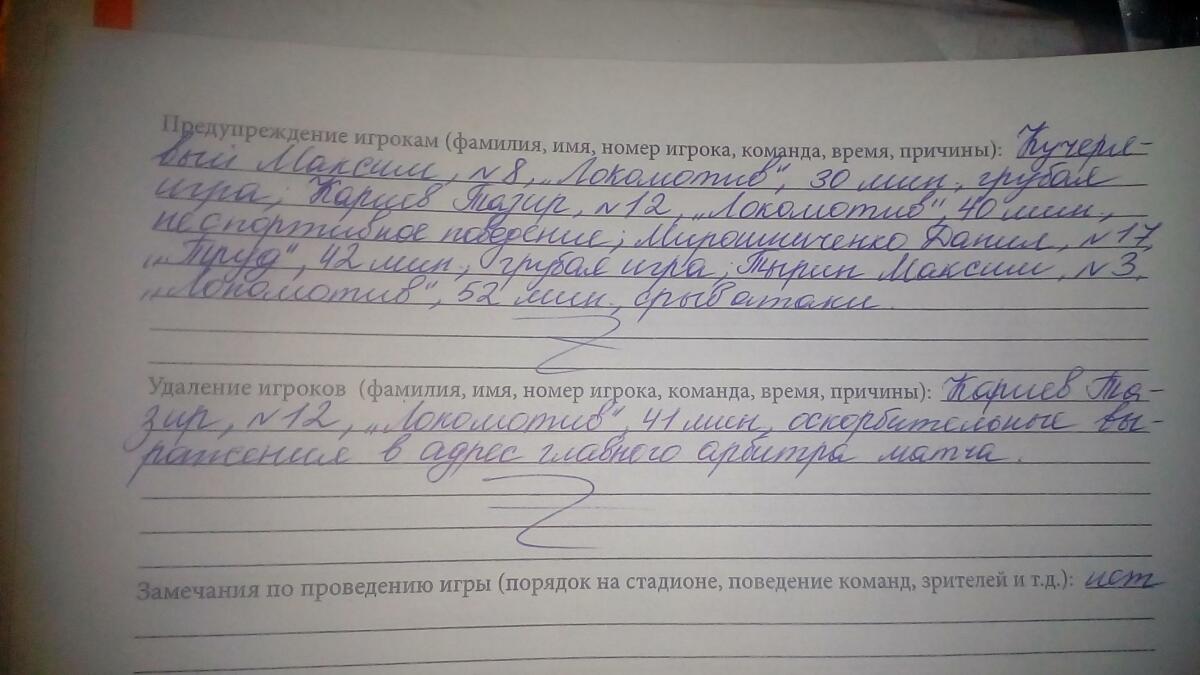 Предупреждение игрокам (фамилия, имя, номер игрока, команда, время, причины): Кучеря-
вый Максим, №8, „Локомотив“, 30 мин., грубая
игра; Кариев Тазир, №12, „Локомотив“, 40 мин.,
неспортивное поведение; Мирошниченко Данил, №17,
„Труд“, 42 мин., грубая игра; Тырин Максим, №3,
„Локомотив“, 52 мин., срыв атаки.
Удаление игроков (фамилия, имя, номер игрока, команда, время, причины): Кариев Та-
зир, №12, „Локомотив“, 41 мин., оскорбительные вы-
ражения в адрес главного арбитра матча.
Замечания по проведению игры (порядок на стадионе, поведение команд, зрителей и т.д.): нет